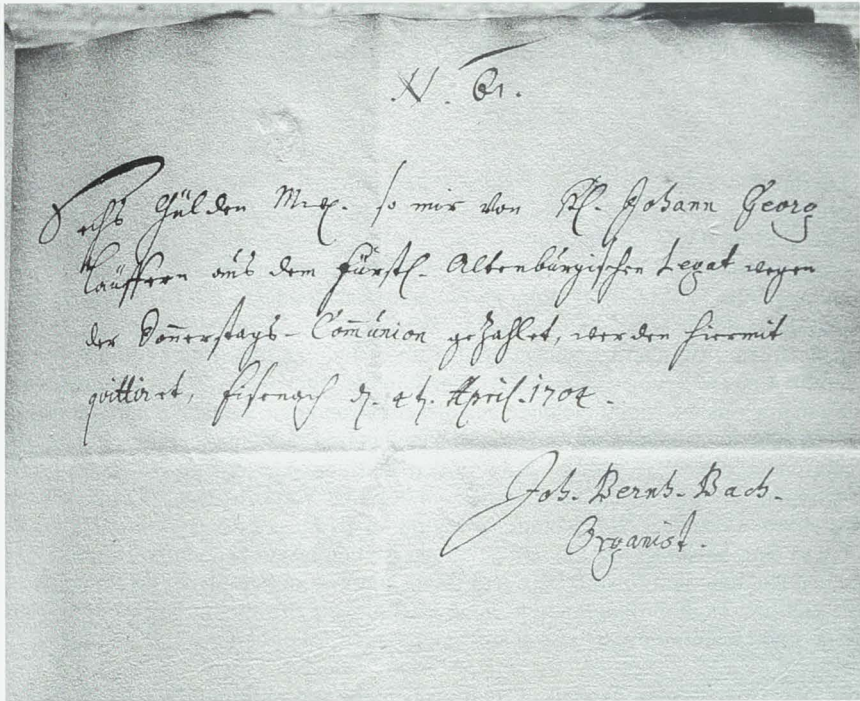 N. 61.
Sechs Gülden Mfl. so mir von H. Johann Georg
Läuffern aus dem Fürstl. Altenburgischen Legat wegen
der Donnerstags-Com̄union gezahlet, werden hiermit
quittiret, Eisenach d. April. 1704.
Joh. Bernh. Bach.
Organist.